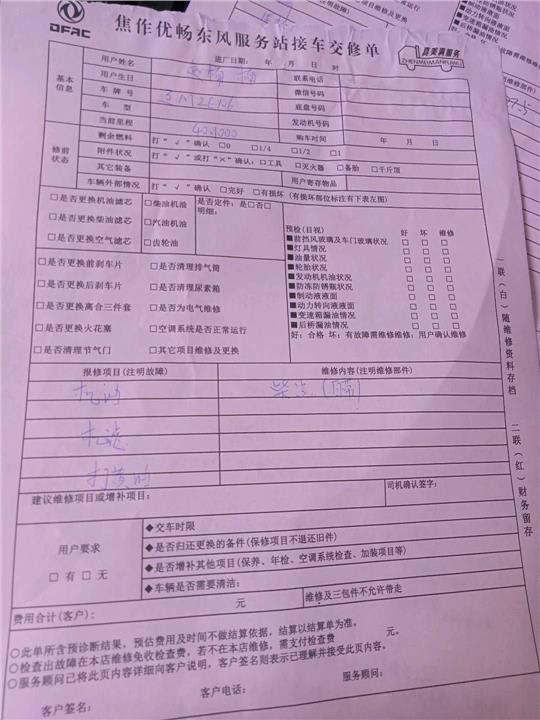 DFAC
焦作优畅东风服务站接车交修单
真美满服务
ZHENMEIMANFUWU
进厂日期： 年 月 日 时
基本信息
用户姓名
联系电话
用户生日
微信号码
车牌号
底盘号码
车型
发动机号码
当前里程 40.000
购车时间 年 月 日
修前状态
剩余燃料 打“√”确认 □0 □1/4 □1/2 □1
附件状况 打“√”或打“×”确认：□工具 □灭火器 □备胎 □千斤顶
其它装备
用户寄存物品
车辆外部情况 打“√”确认 □完好 □有损坏（有损坏部位标注有下表左图）
□是否更换机油滤芯 □柴油机油 是否定件：是□否□
明细：
□是否更换柴油滤芯 □汽油机油
□是否更换空气滤芯 □齿轮油
预检（目视） 好 坏 维修
■前挡风玻璃及车门玻璃状况 □ □ □
■灯具情况 □ □ □
■油量状况 □ □ □
■轮胎状况 □ □ □
■发动机机油状况 □ □ □
■防冻防锈瓶状况 □ □ □
■制动液液面 □ □ □
■动力转向液面 □ □ □
■变速箱漏油情况 □ □ □
■后桥漏油情况 □ □ □
好：合格 坏：有故障需维修维修：用户确认维修
□是否更换前刹车片 □是否清理排气筒
□是否更换后刹车片 □是否清理尿素箱
□是否更换离合三件套 □是否为电气维修
□是否更换火花塞 □空调系统是否正常运行
□是否清理节气门 □其它项目维修及更换
报修项目（注明故障） 维修内容（注明维修部件）
机油
机滤
打黄油
建议维修项目或增补项目：
司机确认签字：
用户要求
□ 有 □ 无
◆交车时限
◆是否归还更换的备件（保修项目不退还旧件）
◆是否增补其他项目（保养、年检、空调系统检查、加装项目等）
◆车辆是否需要清洁：
费用合计（客户）： 元
维修及三包件不允许带走
○此单所含预诊断结果，预估费用及时间不做结算依据，结算以结算单为准。
○检查出故障在本店维修免收检查费，若不在本店维修，需支付检查费 元。
○服务顾问已将此页内容详细向客户说明，客户签名则表示已理解并接受此页内容。
客户签名：
客户电话：
服务顾问：
一联（白）随维修资料存档
二联（红）财务留存